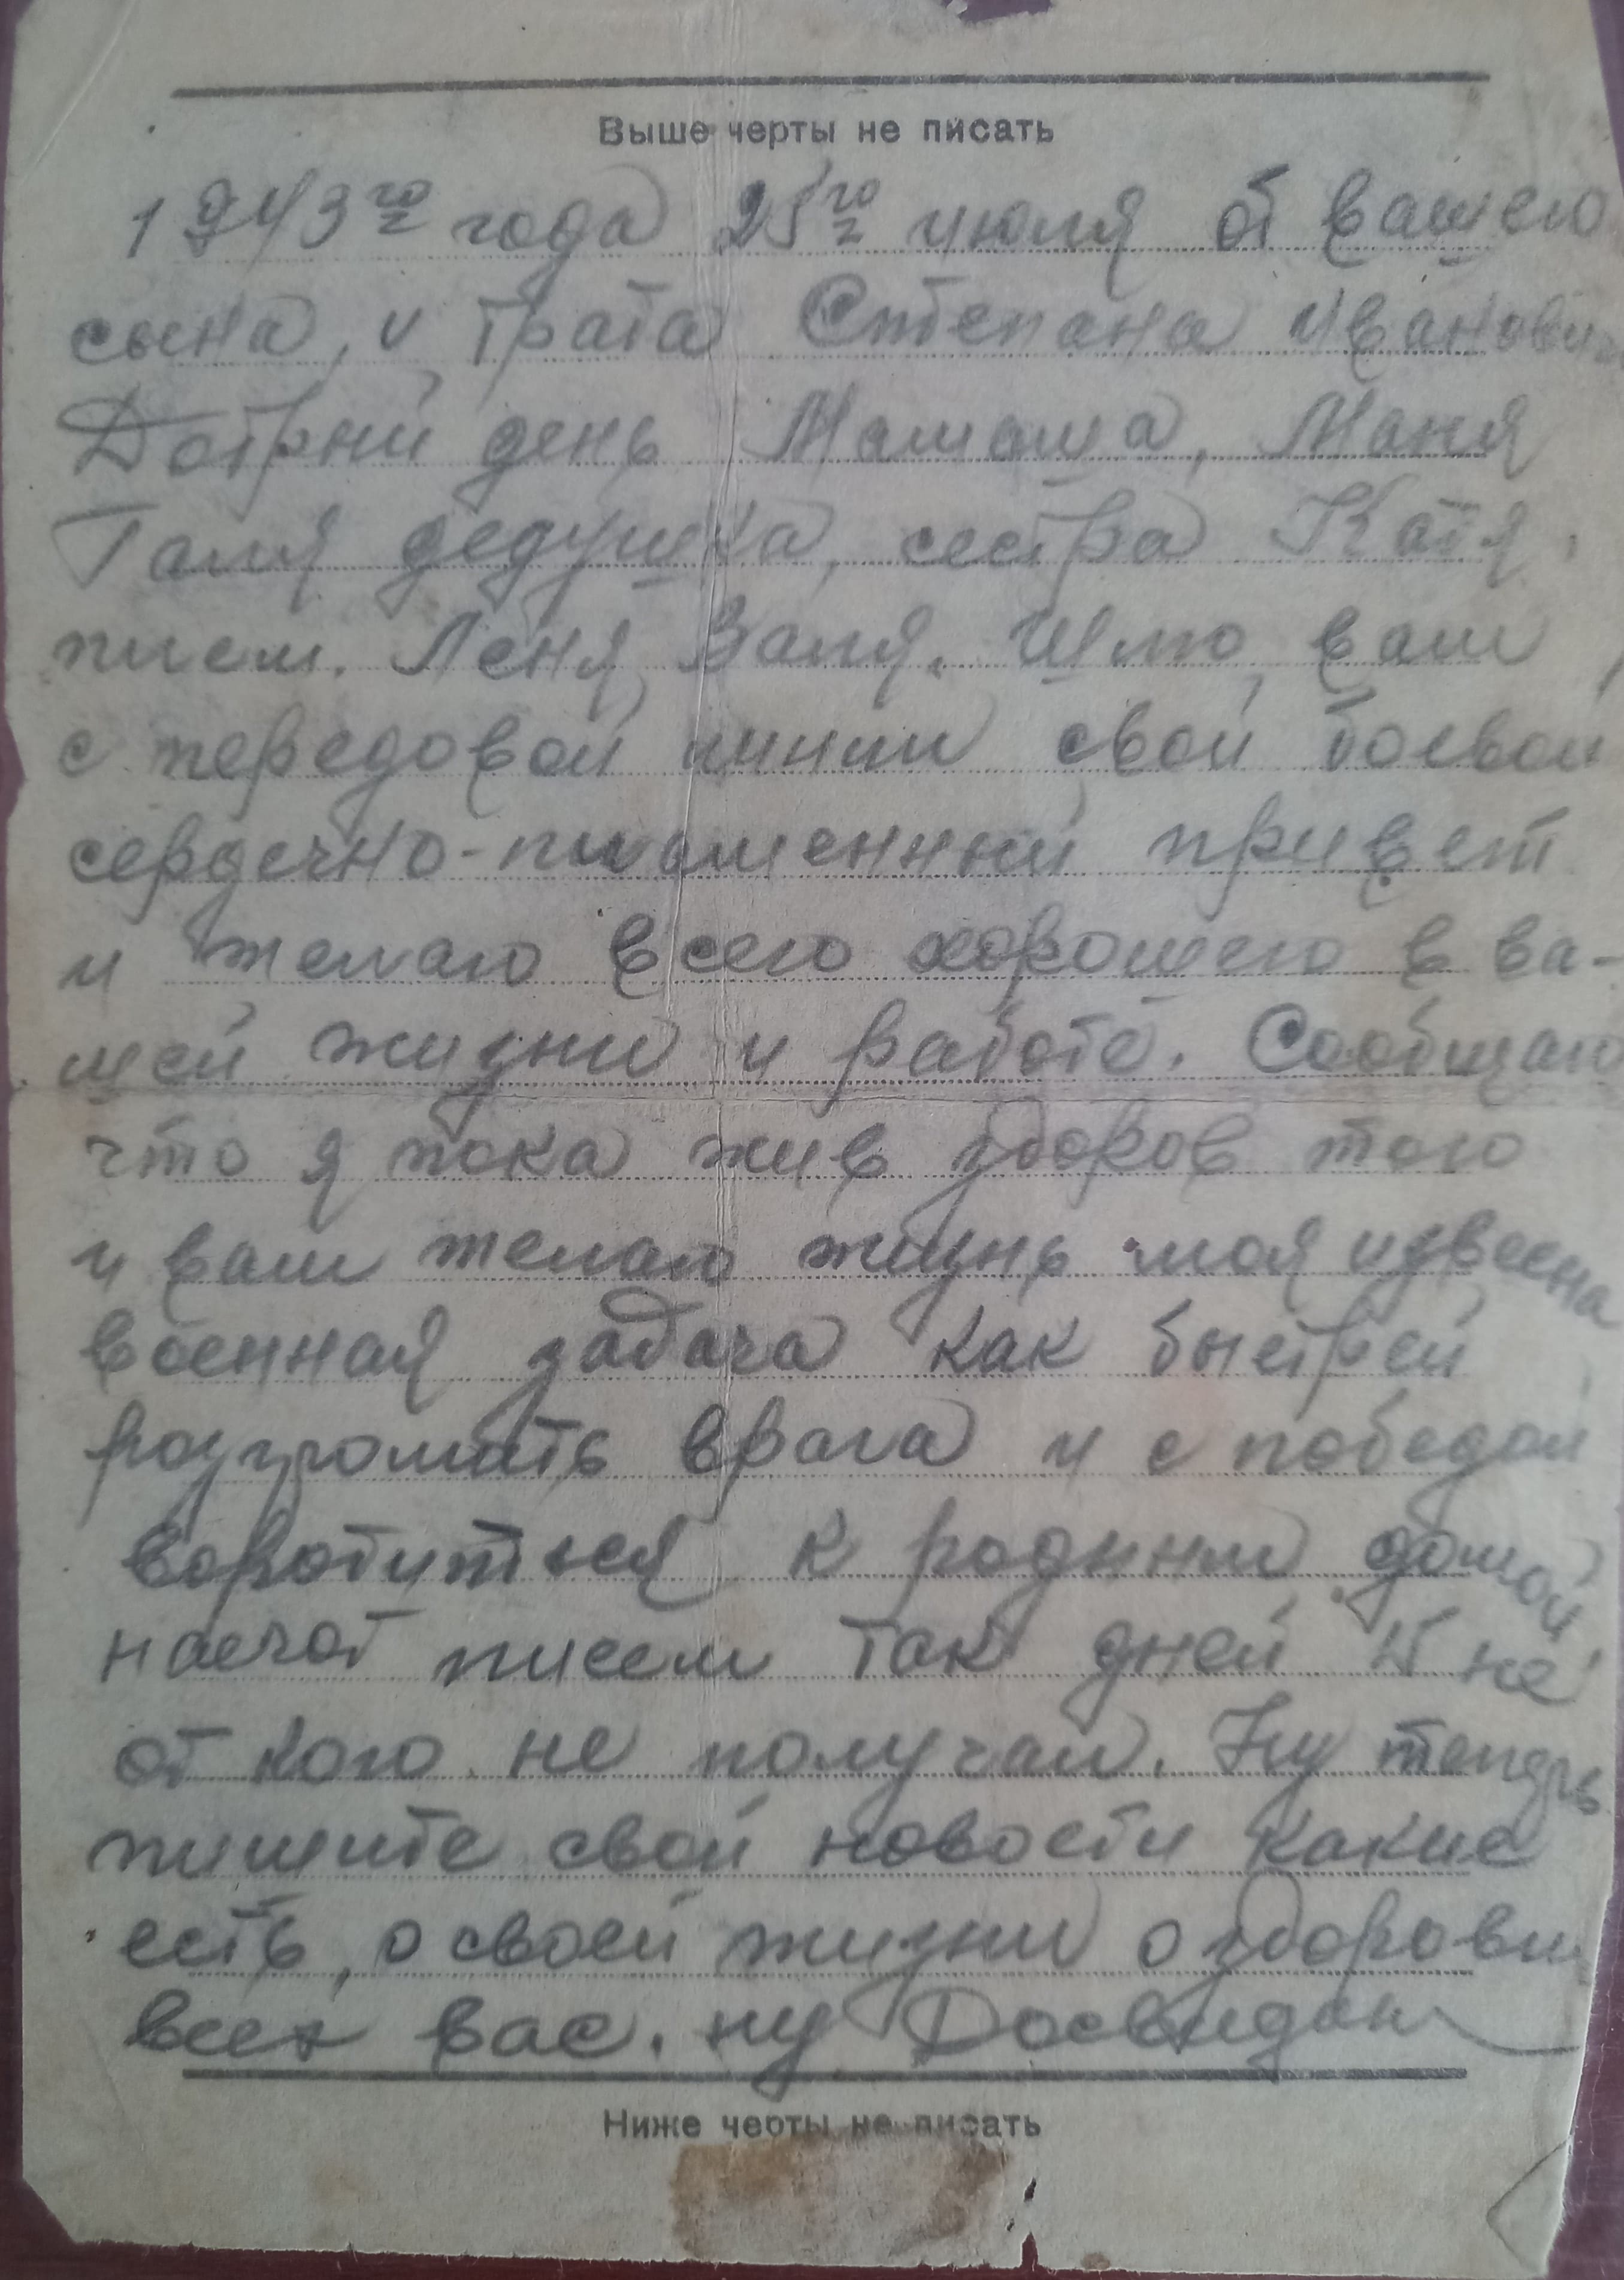 Выше черты не писать
1943го года 25го июля от вашего
сына, и брата Степана Иванови
Добрый день Мамаша, Маня
Галя дедушка, сестра Катя,
плем. Лёня, Валя. Шлю вам,
с передовой линии свой боевой
сердечно-пламенный привет
и желаю всего хорошего в ва-
шей жизни и работе. Сообщаю
что я пока жив здоров того
и вам желаю жизнь моя извесна
военная задача как быстрей
разгромать врага и с победой
воротиться к родным домой
насчот писем так дней 15 не
от кого не получал. Ну теперь
пишите свои новости какие
есть, о своей жизни о здоровьи
всех вас. ну Досвидан
Ниже черты не писать